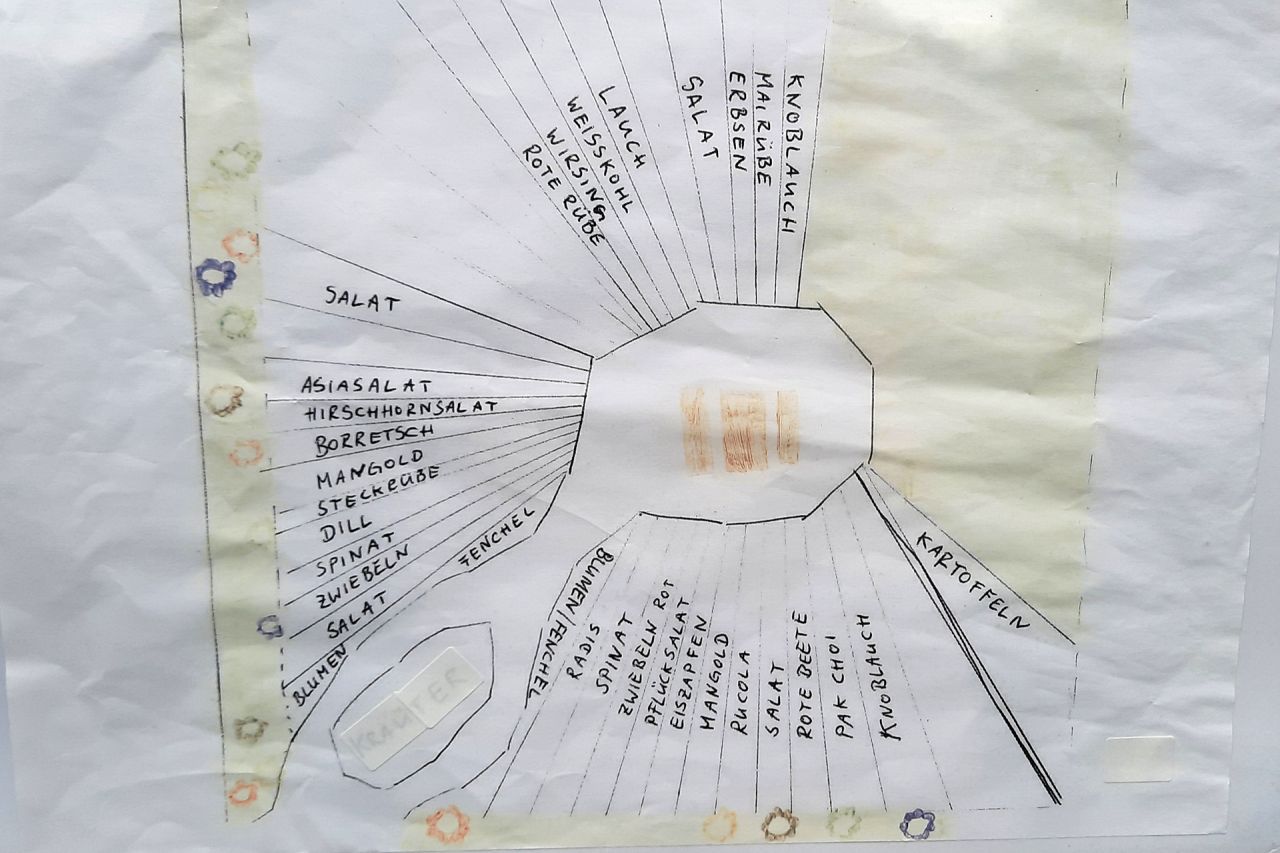 ROTE RÜBE
WIRSING
WEISSKOHL
LAUCH
SALAT
ERBSEN
MAIRÜBE
KNOBLAUCH
SALAT
ASIASALAT
HIRSCHHORNSALAT
BORRETSCH
MANGOLD
STECKRÜBE
DILL
SPINAT
ZWIEBELN
SALAT
FENCHEL
BLUMEN
KRÄUTER
BLUMEN/FENCHEL
RADIS
SPINAT
ZWIEBELN ROT
PFLÜCKSALAT
EISZAPFEN
MANGOLD
RUCOLA
SALAT
ROTE BEETE
PAK CHOI
KNOBLAUCH
KARTOFFELN